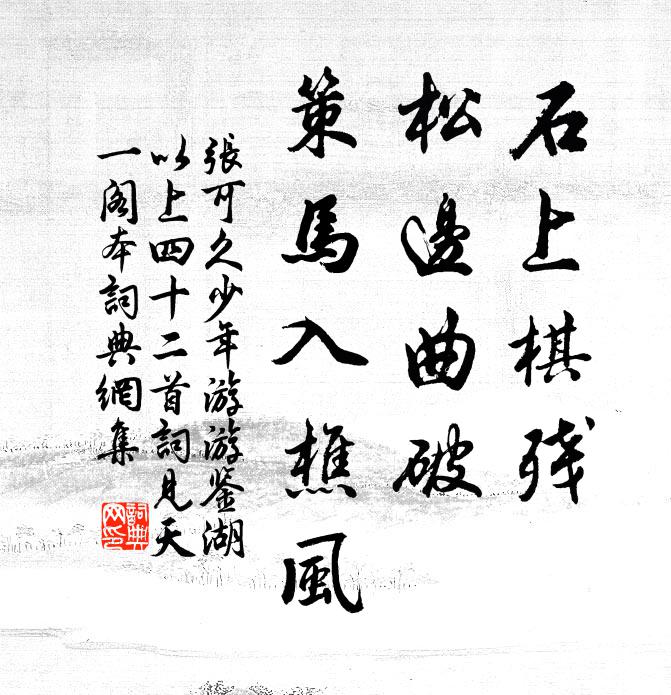 石上棋残
松邊曲破
策馬入樵風
張可久少年游游鉴湖
以上四十二首詞見天
一阁本詞典網集
詞典
网印